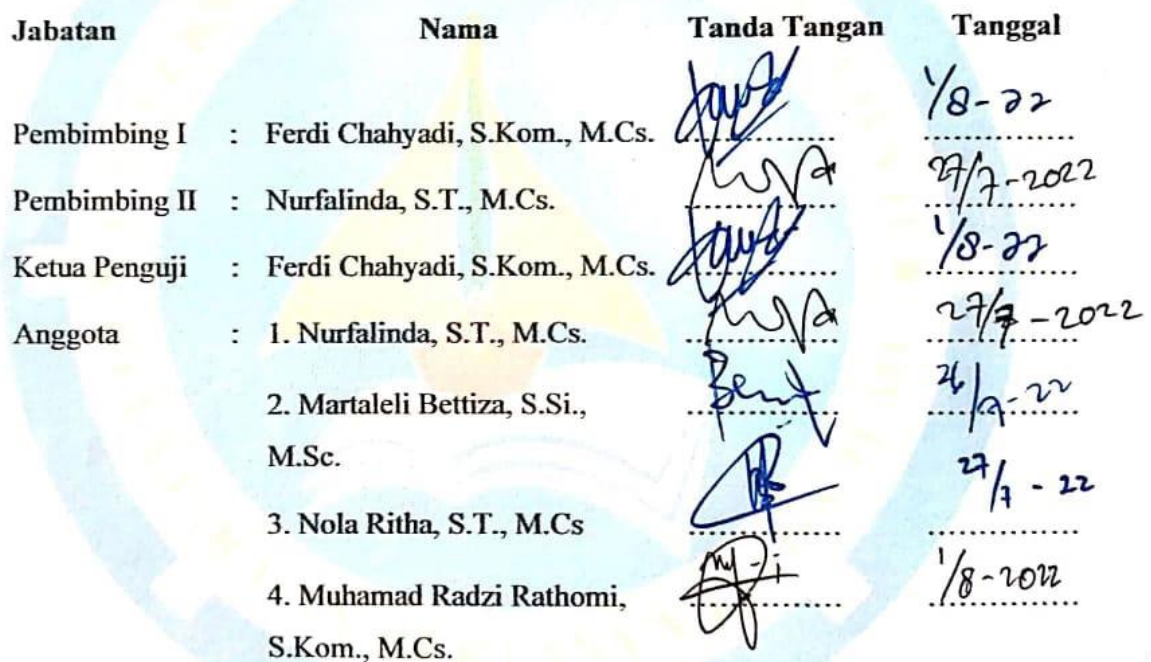 Jabatan Nama Tanda Tangan Tanggal
Pembimbing I : Ferdi Chahyadi, S.Kom., M.Cs. 1/8-22
Pembimbing II : Nurfalinda, S.T., M.Cs. 27/7-2022
Ketua Penguji : Ferdi Chahyadi, S.Kom., M.Cs. 1/8-22
Anggota : 1. Nurfalinda, S.T., M.Cs. 27/7-2022
2. Martaleli Bettiza, S.Si., 26/7-22
M.Sc.
3. Nola Ritha, S.T., M.Cs 27/7-22
4. Muhamad Radzi Rathomi, 1/8-2022
S.Kom., M.Cs.